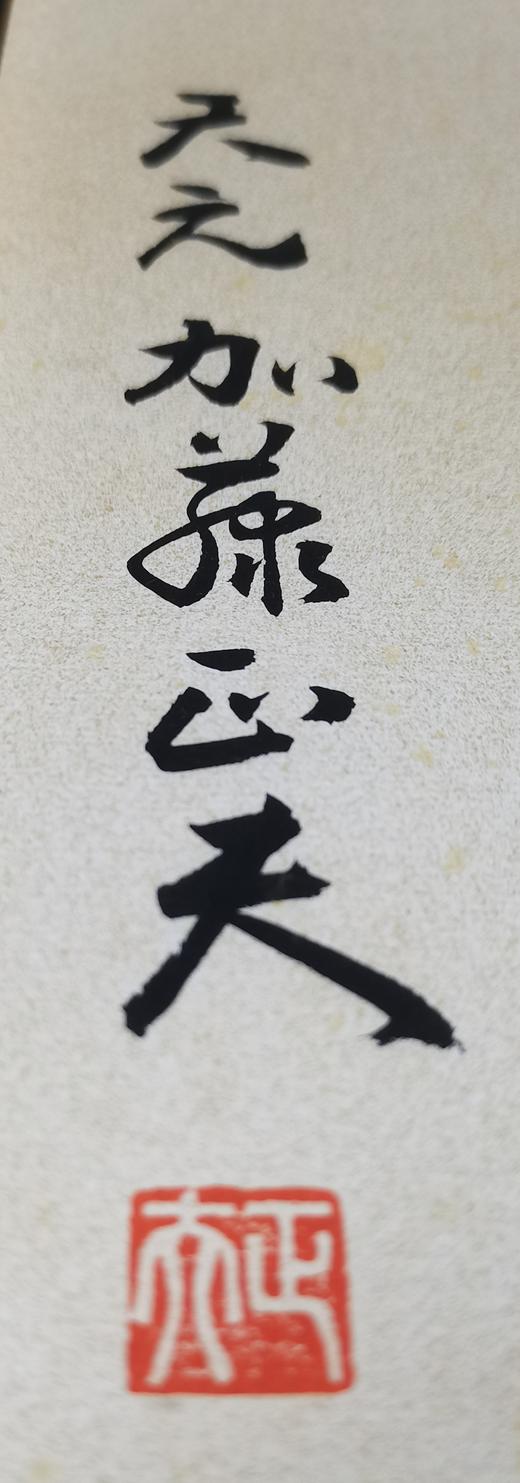 天元 加藤正夫
正夫